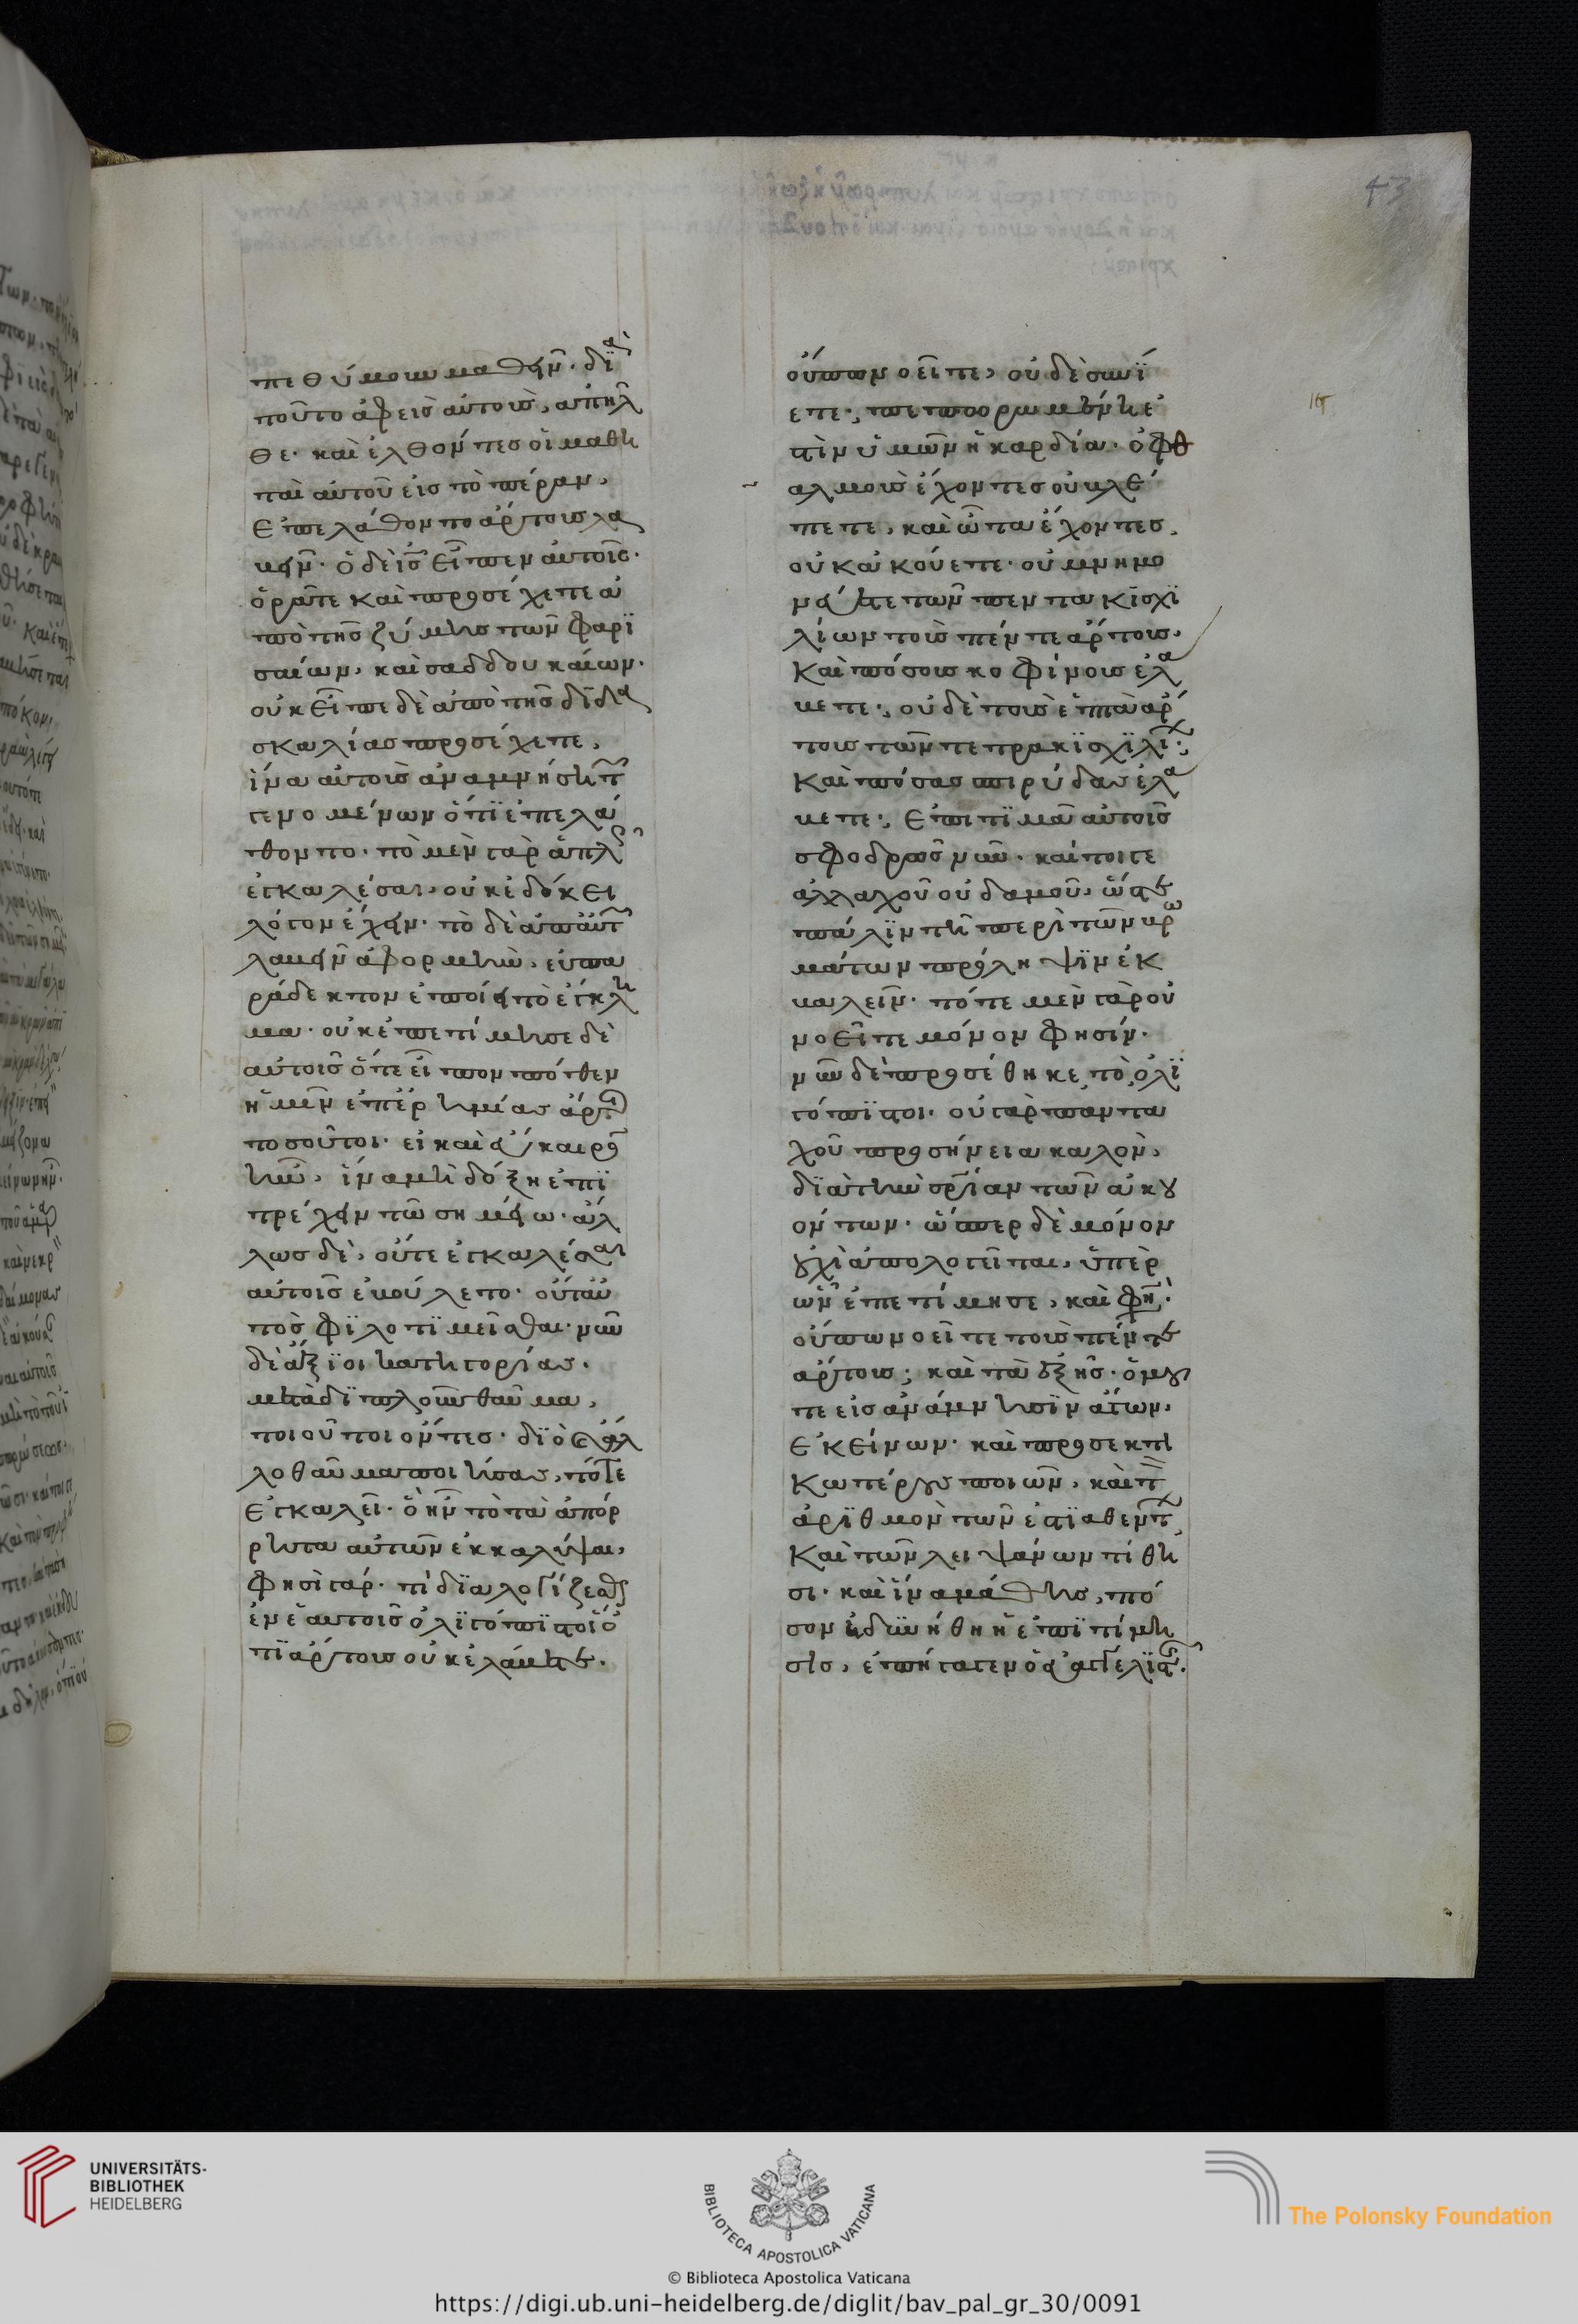 πεθύμουν μαθεῖν. διὰ
τοῦτο ἀφεὶς αὐτοὺς, ἀπῆλ
θε. καὶ ἐλθόντες οἱ μαθη
ταὶ αὐτοῦ εἰς τὸ πέραν,
ἐπελάθοντο ἄρτους λα
βεῖν. ὁ δὲ ἰς εἶπεν αὐτοῖς.
ὁρᾶτε καὶ προσέχετε ἀ
πὸ τῆς ζύμης τῶν φαρϊ
σαίων, καὶ σαδδουκαίων.
οὐκ εἶπε δὲ ἀπὸ τῆς διδα
σκαλίας προσέχετε,
ἵνα αὐτοὺς ἀναμνήση τῶν
γενομένων ὅτϊ ἐπελά
θοντο. τὸ μὲν γὰρ ἁπλῶς
ἐγκαλέσαι, οὐκ ἐδόκει
λόγον ἔχειν. τὸ δὲ ἀπαὐτῶν
λαβεῖν ἀφορμὴν, εὐπα
ράδεκτον ἐποίει τὸ ἔγκλη
μα. οὐκ ἐπετίμησε δὲ
αὐτοῖς ὅτε εἶπον πόθεν
ἡμῖν ἐπ' ἐρημίας ἄρτοι
τοσοῦτοι. εἰ καὶ εὔκαιρον
ἦν, ἵνα μὴ δόξη ἐπϊ
τρέχειν τῶ σημείω. ἄλ
λως δὲ, οὔτε ἐγκαλέσαι
αὐτοῖς ἐβούλετο. οὔτ' αὐ
τὸς φϊλοτϊμεῖσθαι. νῦν
δὲ ἄξϊοι κατηγορίας.
μετὰ δϊπλοῦν θαῦμα,
τοιοῦτοι ὄντες. δϊὸ καὶ ἄλ
λο θαῦμα ποιήσας, τότε
ἐγκαλεῖ. ὃ ἦν τὸ τὰ ἀπόρ
ρητα αὐτῶν ἐκκαλύψαι,
φησὶ γάρ. τί δϊαλογίζεσθε
ἐν ἑαυτοῖς ὀλϊγόπϊστοι ὅ
τϊ ἄρτους οὐκ ἐλάβετε.
οὔπω νοεῖτε, οὐδὲ συνί
ετε; πεπωρωμένη ἐ
στὶν ὑμῶν ἡ καρδία. ὀφθ
αλμοὺς ἔχοντες οὐ βλέ
πετε, καὶ ὦτα ἔχοντες,
οὐκ ἀκούετε. οὐ μνημο
νεύετε τῶν πεντακισχϊ
λίων τοὺς πέντε ἄρτους,
καὶ πόσους κοφίνους ἐλά
βετε; οὐδὲ τοὺς ἑπτὰ ἄρ
τους τῶν τετρακϊσχϊλίων;
καὶ πόσας σπυρίδας ἐλά
βετε; ἐπιτϊμᾶ αὐτοῖς
σφοδρῶς νῦν. καίτοιγε
ἀλλαχοῦ οὐδαμοῦ, ὥστε
πάλϊν τὴ περὶ τῶν βρω
μάτων πρόληψϊν ἐκ
βαλεῖν. τότε μὲν γὰρ οὐ
νοεῖτε μόνον φησίν.
νῦν δὲ προσέθηκε τὸ ὀλϊ
γόπϊστοι. οὐ γὰρ παντα
χοῦ προσήνεια καλὸν,
δϊὰ τὴν σρίαν τῶν ἀκου
όντων. ὥσπερ δὲ μόνον
οὐχὶ ἀπολογεῖται, ὑπὲρ
ὧν ἐπετίμησε, καὶ φησί.
οὔπω νοεῖτε τοὺς πέντε
ἄρτους; καὶ τὰ ἑξῆς. ὁμοῦ
τε εἰς ἀνάμνησϊν ἄγων,
ἐκείνων. καὶ προσεκτι
κωτέρους ποιῶν, καὶ τὸν
ἀρϊθμὸν τῶν ἐστϊαθέντων
καὶ τῶν λειψάνων τίθη
σι. καὶ ἵνα μάθης, πό
σον ἠδυνήθη ἡ ἐπϊτίμη
σις, ἐπήγαγεν ὁ εὐαγγελϊστής.
UNIVERSITÄTS-
BIBLIOTHEK
HEIDELBERG
BIBLIOTECA APOSTOLICA VATICANA
The Polonsky Foundation
© Biblioteca Apostolica Vaticana
https://digi.ub.uni-heidelberg.de/diglit/bav_pal_gr_30/0091